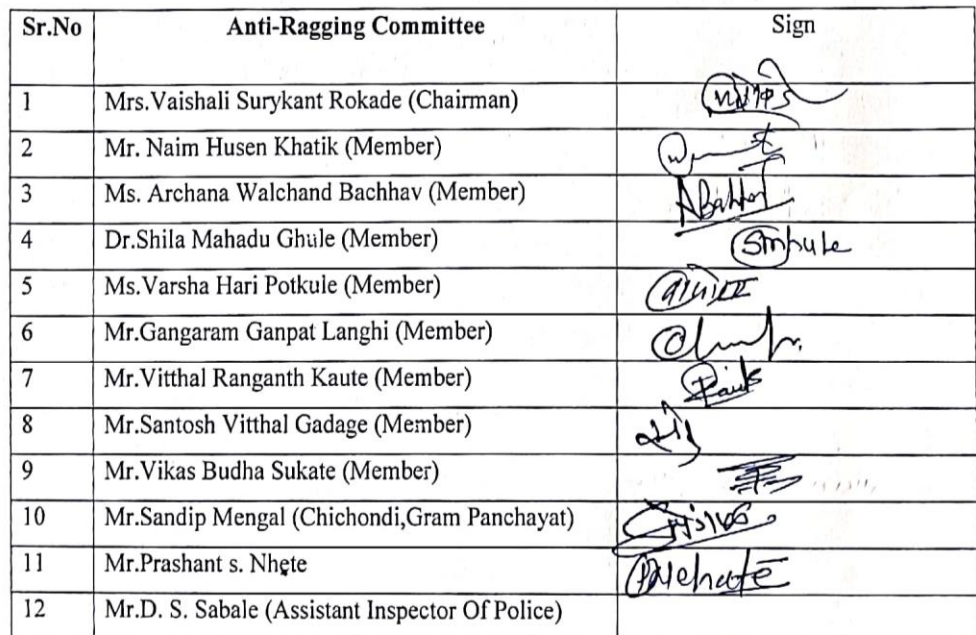 Sr.No Anti-Ragging Committee Sign
1 Mrs.Vaishali Surykant Rokade (Chairman)
2 Mr. Naim Husen Khatik (Member)
3 Ms. Archana Walchand Bachhav (Member)
4 Dr.Shila Mahadu Ghule (Member)
5 Ms.Varsha Hari Potkule (Member)
6 Mr.Gangaram Ganpat Langhi (Member)
7 Mr.Vitthal Ranganth Kaute (Member)
8 Mr.Santosh Vitthal Gadage (Member)
9 Mr.Vikas Budha Sukate (Member)
10 Mr.Sandip Mengal (Chichondi,Gram Panchayat)
11 Mr.Prashant s. Nhete
12 Mr.D. S. Sabale (Assistant Inspector Of Police)